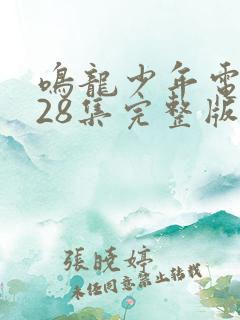 鳴龍少年電
28集完整版
張曉婷
未任同意禁止转载